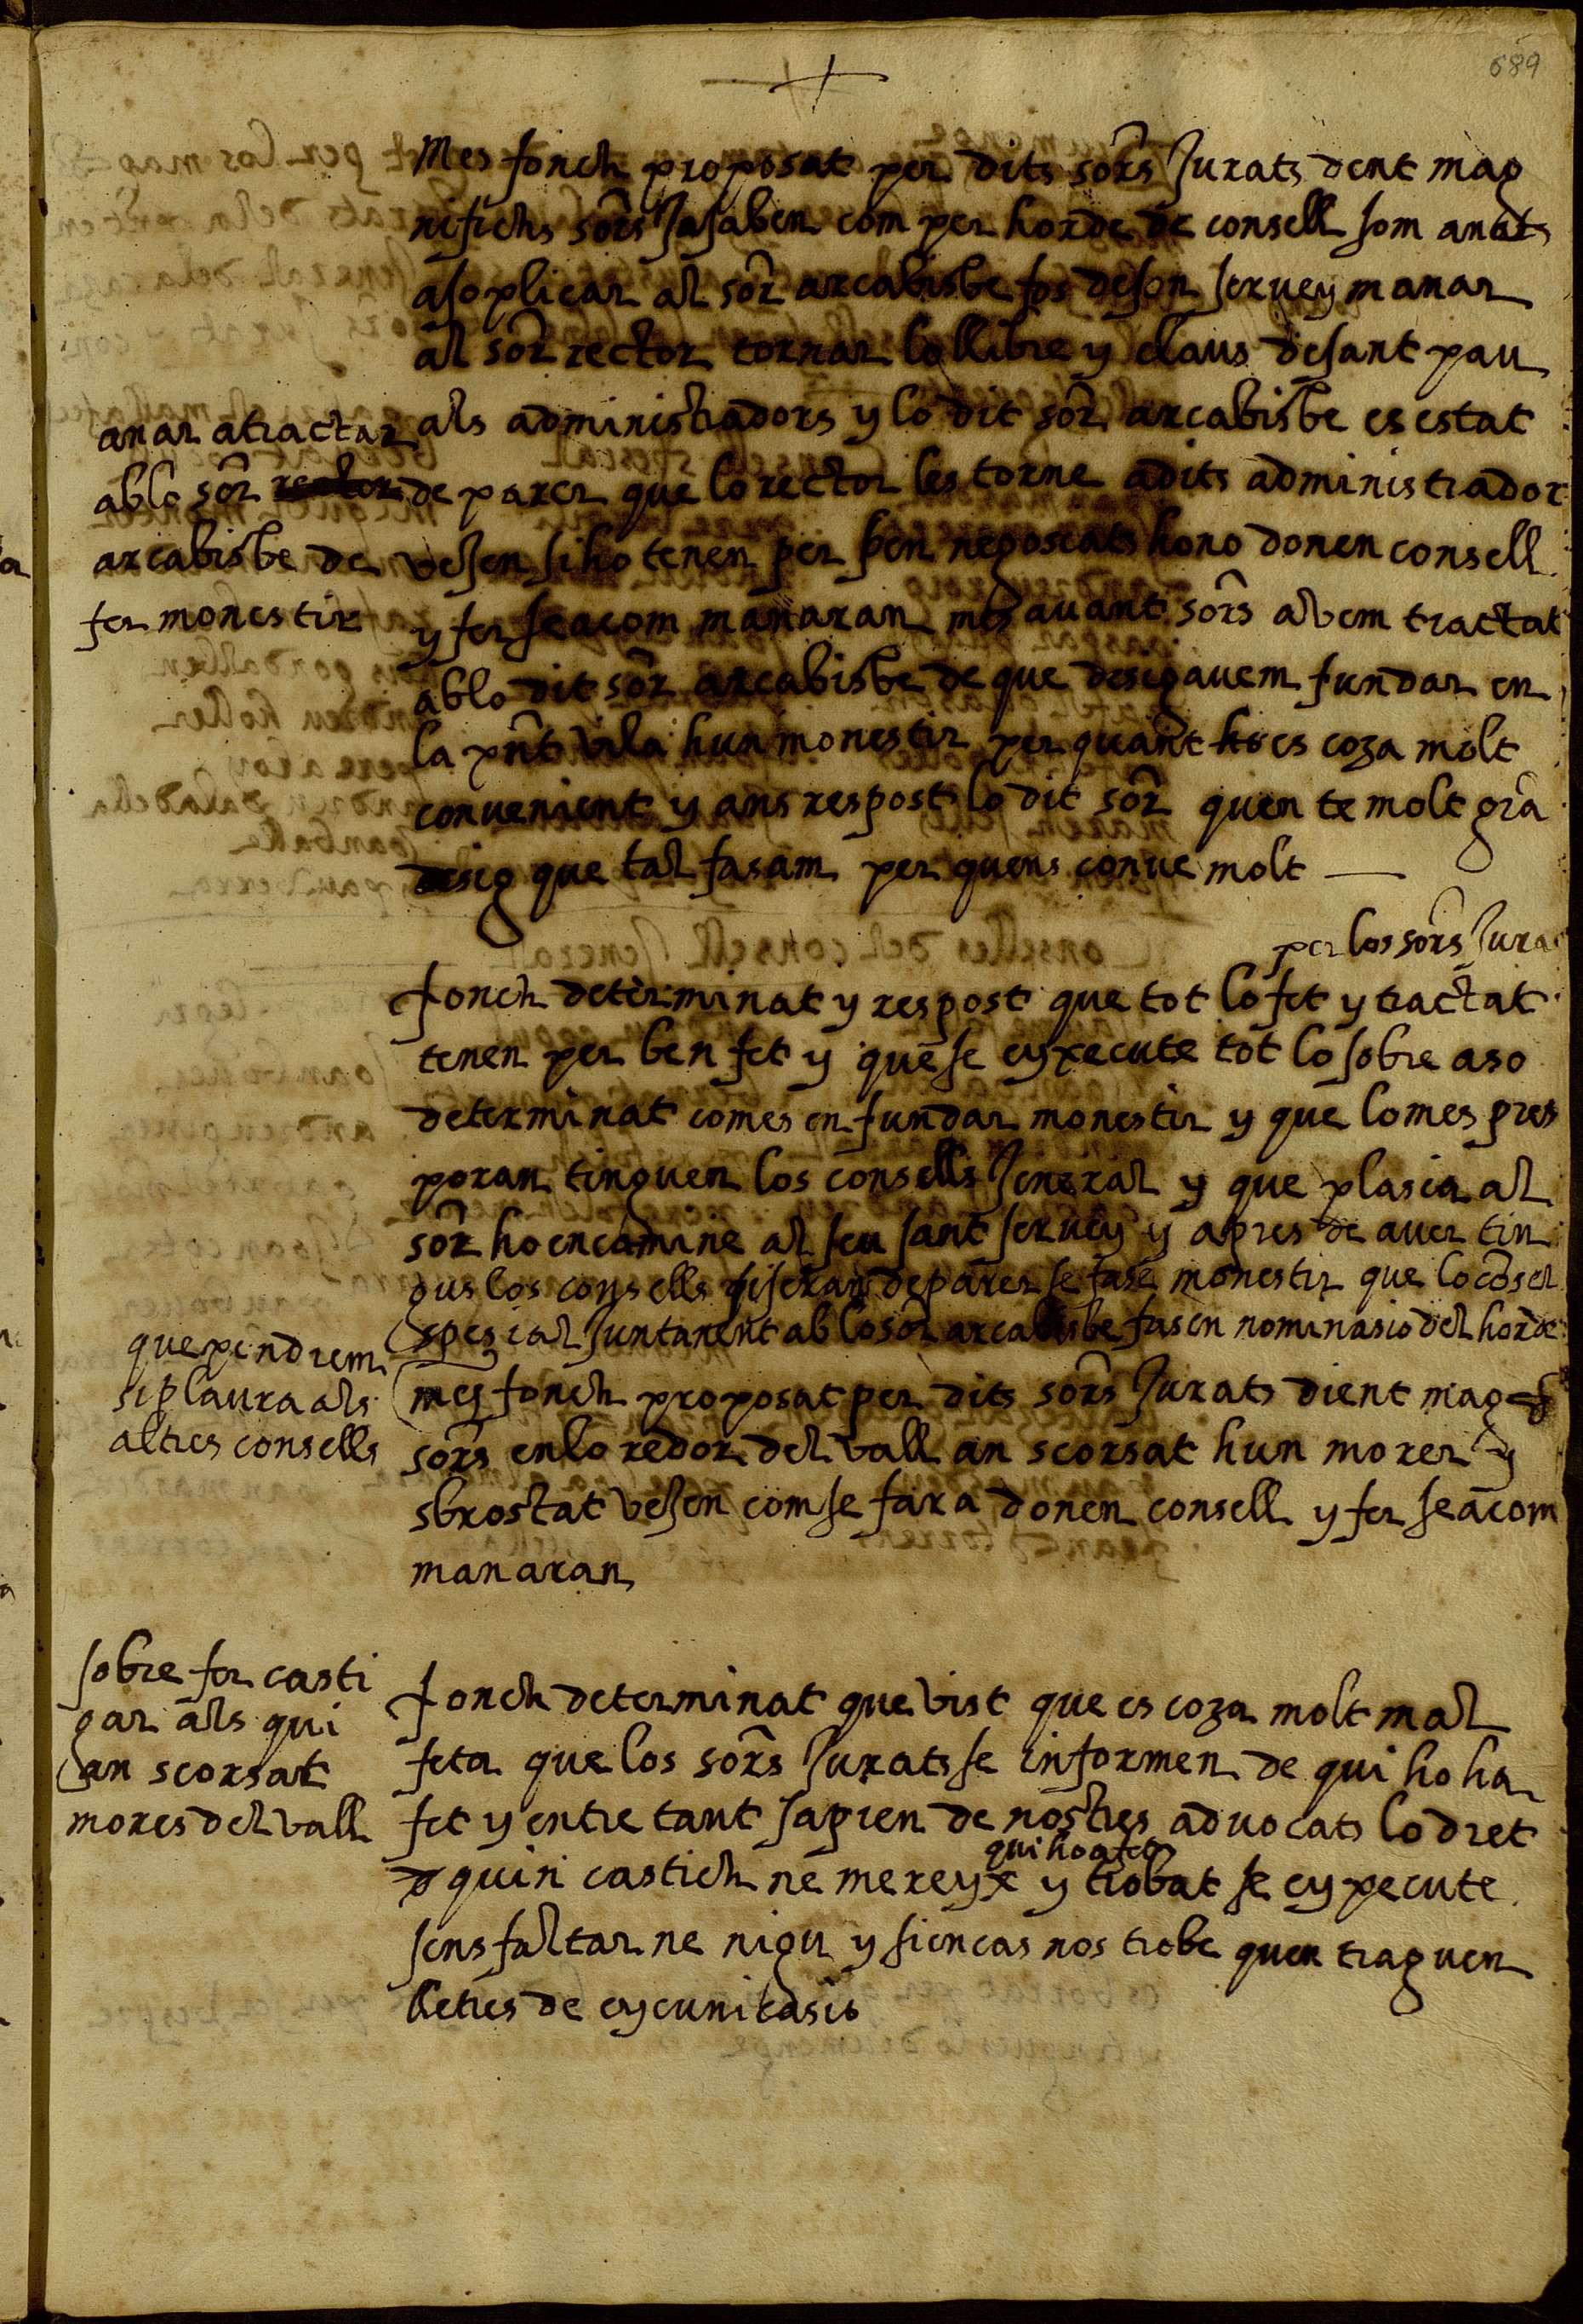 689
Mes fonch proposat per dits sors Jurats dent mag
nifichs sors Ja saben com per horde de consell som anats
a soplicar al sor arcabisbe fos de son seruey manar
al sor rector tornar lo llibre y claus de sant pau
als administradors y lo dit sor arcabisbe es estat
de parer que lo rector les torne a dits administrador
vejen si ho tenen per ben negoseats ho no donen consell
y fer se a com manaran mes auant sors avem tractat
ab lo dit sor arcabisbe de que desigauem fundar en
la pnt vila hun monestir per quant ho es coza molt
conuenient y ans respost lo dit sor quen te molt gra
desig que tal fasam per quens conue molt
anar a tractar
ab lo sor rector
arcabisbe de
fer monestir
per los sors Jura
fonch determinat y respost que tot lo fet y tractat
tenen per ben fet y que se eyxecute tot lo sobre aso
determinat comes en fundar monestir y que lo mes pres
poran tinguen los consells Jeneral y que plasia al
sor ho encamine al seu sant seruey y apres de auer tin
gus los consells si seran de parer se fase monestir que lo cosel
spesial Juntament ab lo sor arcabisbe fasen nominasio del horde
que pendrem
si plaura als
altres consells
mes fonch proposat per dits sors Jurats dient mag
sors en lo redor del vall an scorsat hun morer y
sbrostat vejen com se fara donen consell y fer se a com
manaran
sobre fer casti
gar als qui
an scorsat
mores del vall
fonch determinat que vist que es coza molt mal
feta que los sors Jurats se informen de qui ho ha
fet y entre tant sapien de nostres aduocats lo dret
qui ho a fet
quin castich ne mereyx y trobat se eyxecute
sens faltar ne nigu y si en cas nos trobe quen traguen
lletres de eycunicasio